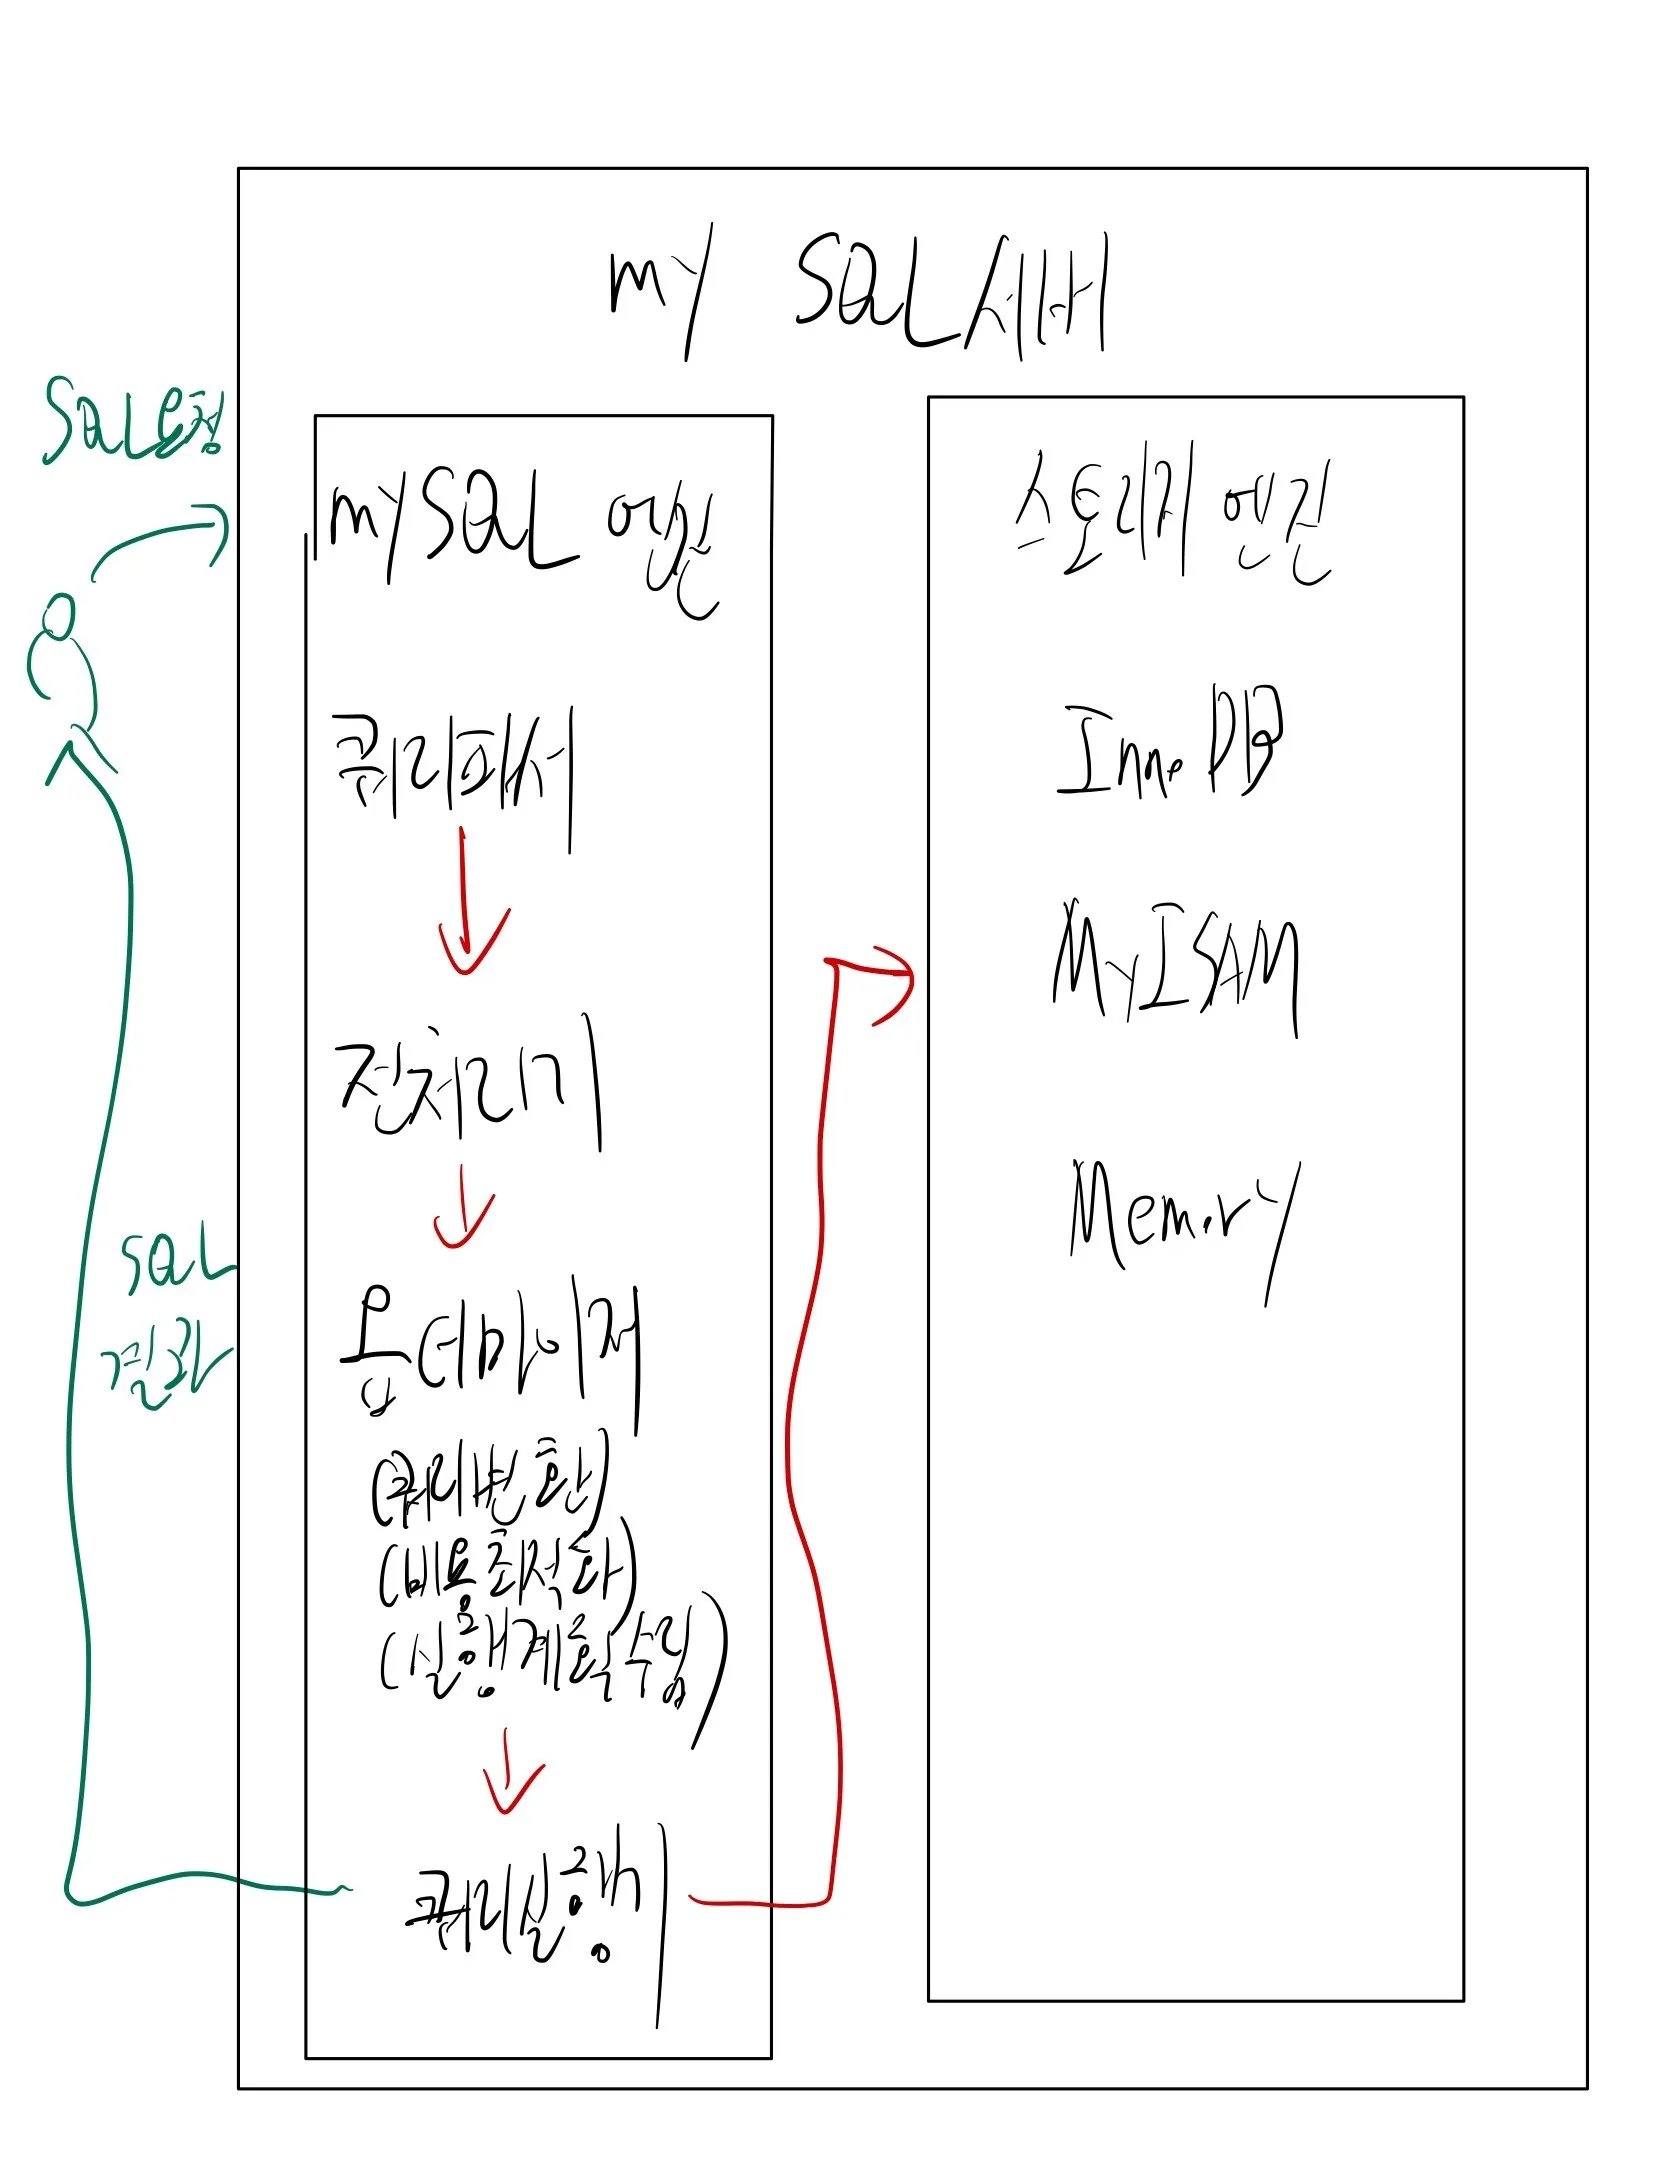 my SQL서버
SQL요청
mySQL 엔진
쿼리파서
전처리기
옵티마이저
(쿼리변환)
(비용최적화)
(실행계획수립)
쿼리실행기
스토리지 엔진
InnoDB
MyISAM
Memory
SQL
결과